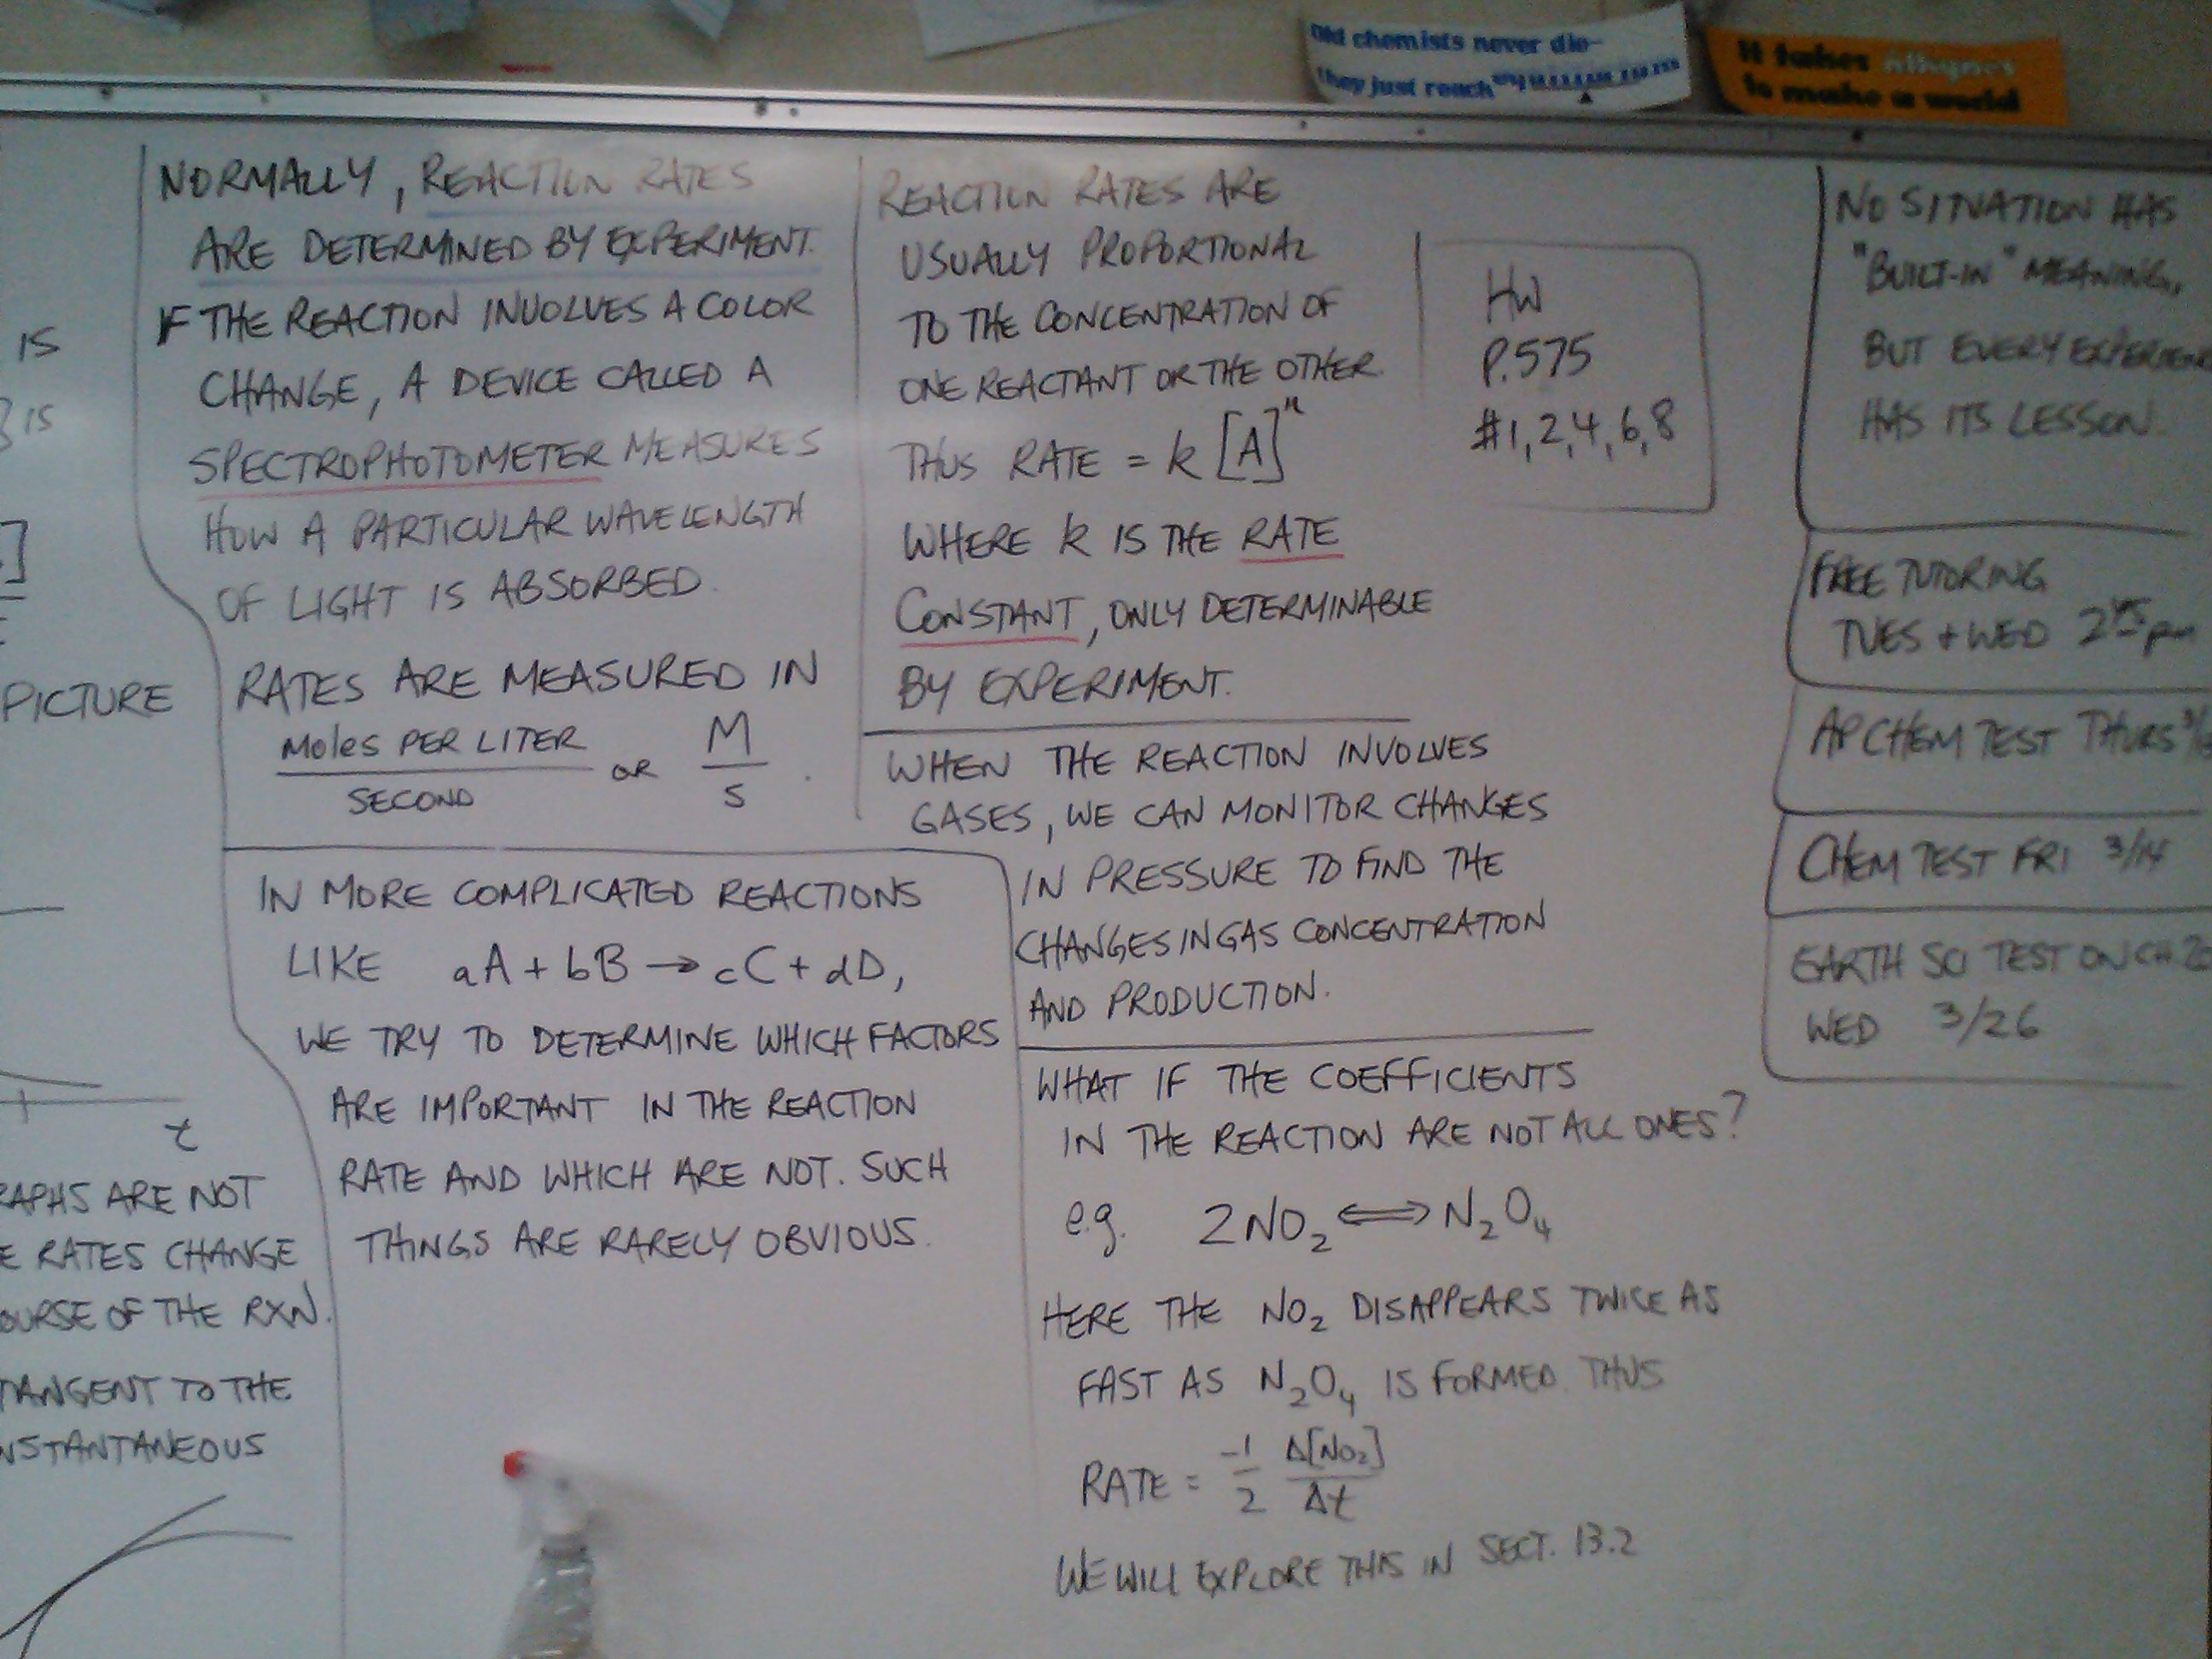 Old chemists never die-
they just reach
It takes Alkynes
to make a world
IS
IS
PICTURE
t
RAPHS ARE NOT
E RATES CHANGE
OURSE OF THE RXN.
TANGENT TO THE
NSTANTANEOUS
NORMALLY, REACTION RATES
ARE DETERMINED BY EXPERIMENT.
IF THE REACTION INVOLVES A COLOR
CHANGE, A DEVICE CALLED A
SPECTROPHOTOMETER MEASURES
HOW A PARTICULAR WAVELENGTH
OF LIGHT IS ABSORBED.
RATES ARE MEASURED IN
Moles PER LITER / SECOND OR M / S .
IN MORE COMPLICATED REACTIONS
LIKE aA + bB → cC + dD,
WE TRY TO DETERMINE WHICH FACTORS
ARE IMPORTANT IN THE REACTION
RATE AND WHICH ARE NOT. SUCH
THINGS ARE RARELY OBVIOUS.
REACTION RATES ARE
USUALLY PROPORTIONAL
TO THE CONCENTRATION OF
ONE REACTANT OR THE OTHER.
THUS RATE = k [A]ⁿ
WHERE k IS THE RATE
CONSTANT, ONLY DETERMINABLE
BY EXPERIMENT.
WHEN THE REACTION INVOLVES
GASES, WE CAN MONITOR CHANGES
IN PRESSURE TO FIND THE
CHANGES IN GAS CONCENTRATION
AND PRODUCTION.
WHAT IF THE COEFFICIENTS
IN THE REACTION ARE NOT ALL ONES?
e.g. 2NO₂ ⟺ N₂O₄
HERE THE NO₂ DISAPPEARS TWICE AS
FAST AS N₂O₄ IS FORMED. THUS
RATE = -1/2 Δ[NO₂]/Δt
WE WILL EXPLORE THIS IN SECT. 13.2
HW
P.575
#1,2,4,6,8
NO SITUATION HAS
"BUILT-IN" MEANING,
BUT EVERY EXPERIEN
HAS ITS LESSON.
FREE TUTORING
TUES + WED 2⁴⁵ pm
AP CHEM TEST THURS 3/
CHEM TEST FRI 3/14
EARTH SCI TEST ON CH 20
WED 3/26